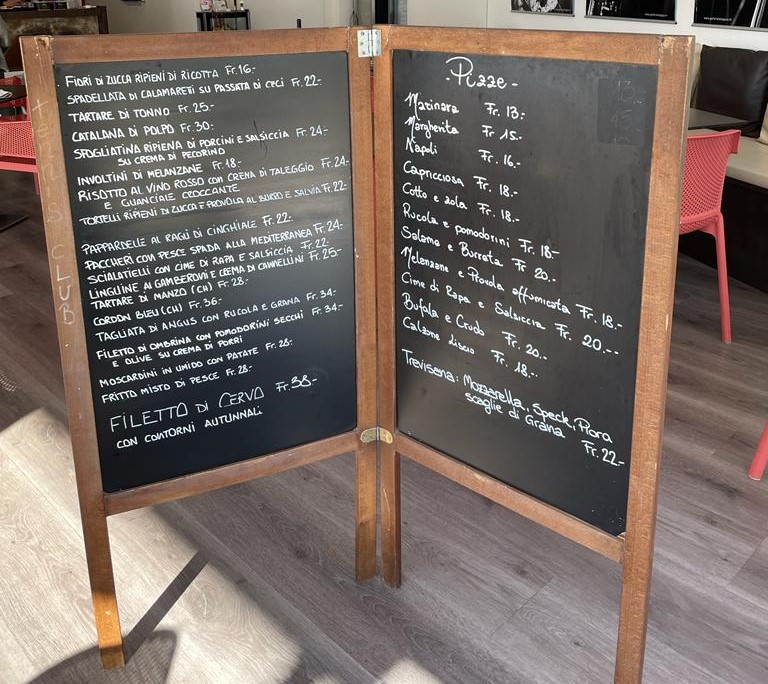 FIORI DI ZUCCA RIPIENI DI RICOTTA Fr.16-
SPADELLATA DI CALAMARETI SU PASSATA DI CECI Fr.22-
TARTARE DI TONNO Fr.25-
CATALANA DI POLPO Fr.30-
SFOGLIATINA RIPIENA DI PORCINI E SALSICCIA Fr.24-
SU CREMA DI PECORINO
INVOLTINI DI MELANZANE Fr.18-
RISOTTO AL VINO ROSSO CON CREMA DI TALEGGIO Fr.24-
E GUANCIALE CROCCANTE
TORTELLI RIPIENI DI ZUCCA E PROVOLA AL BURRO E SALVIA Fr.22-
PAPPARDELLE AL RAGÙ DI CINGHIALE Fr.22-
PACCHERI CON PESCE SPADA ALLA MEDITERRANEA Fr.24-
SCIALATIELLI CON CIME DI RAPA E SALSICCIA Fr.22-
LINGUINE AI GAMBERONI E CREMA DI CANNELLINI Fr.25-
TARTARE DI MANZO (CH) Fr.28-
CORDON BLEU (CH) Fr.36-
TAGLIATA DI ANGUS CON RUCOLA E GRANA Fr.34-
FILETTO DI OMBRINA CON POMODORINI SECCHI Fr.34-
E OLIVE SU CREMA DI PORRI
MOSCARDINI IN UMIDO CON PATATE Fr.28-
FRITTO MISTO DI PESCE Fr.28-
FILETTO DI CERVO Fr.38-
CON CONTORNI AUTUNNALI
TENNIS CLUB
-Pizze-
Marinara Fr. 13.-
Margherita Fr. 15.-
Napoli Fr. 16.-
Capricciosa Fr. 18.-
Cotto e zola Fr. 18.-
Rucola e pomodorini Fr. 18-
Salame e Burrata Fr. 20.-
Melenzane e Provola affumicata Fr. 18.-
Cime di Rapa e Salsiccia Fr. 20.--
Bufala e Crudo Fr. 20.-
Calzone liscio Fr. 18.-
Trevisana: Mozzarella, Speck, Piora
scaglie di Grana Fr. 22-